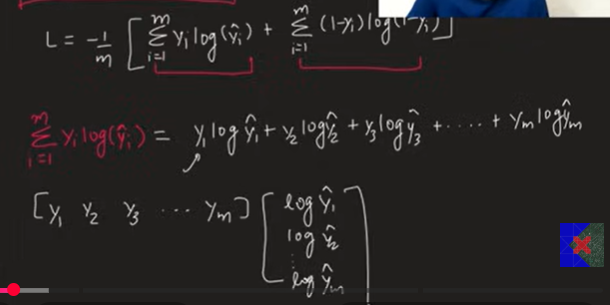 L = -1/m [ Σ_{i=1}^{m} yᵢ log(ŷᵢ) + Σ_{i=1}^{m} (1-yᵢ) log(1-ŷᵢ) ]
Σ_{i=1}^{m} yᵢ log(ŷᵢ) = y₁ log ŷ₁ + y₂ log ŷ₂ + y₃ log ŷ₃ + ..... + yₘ log ŷₘ
[ y₁ y₂ y₃ ... yₘ ] [ log ŷ₁
log ŷ₂
⋮
log ŷₘ ]